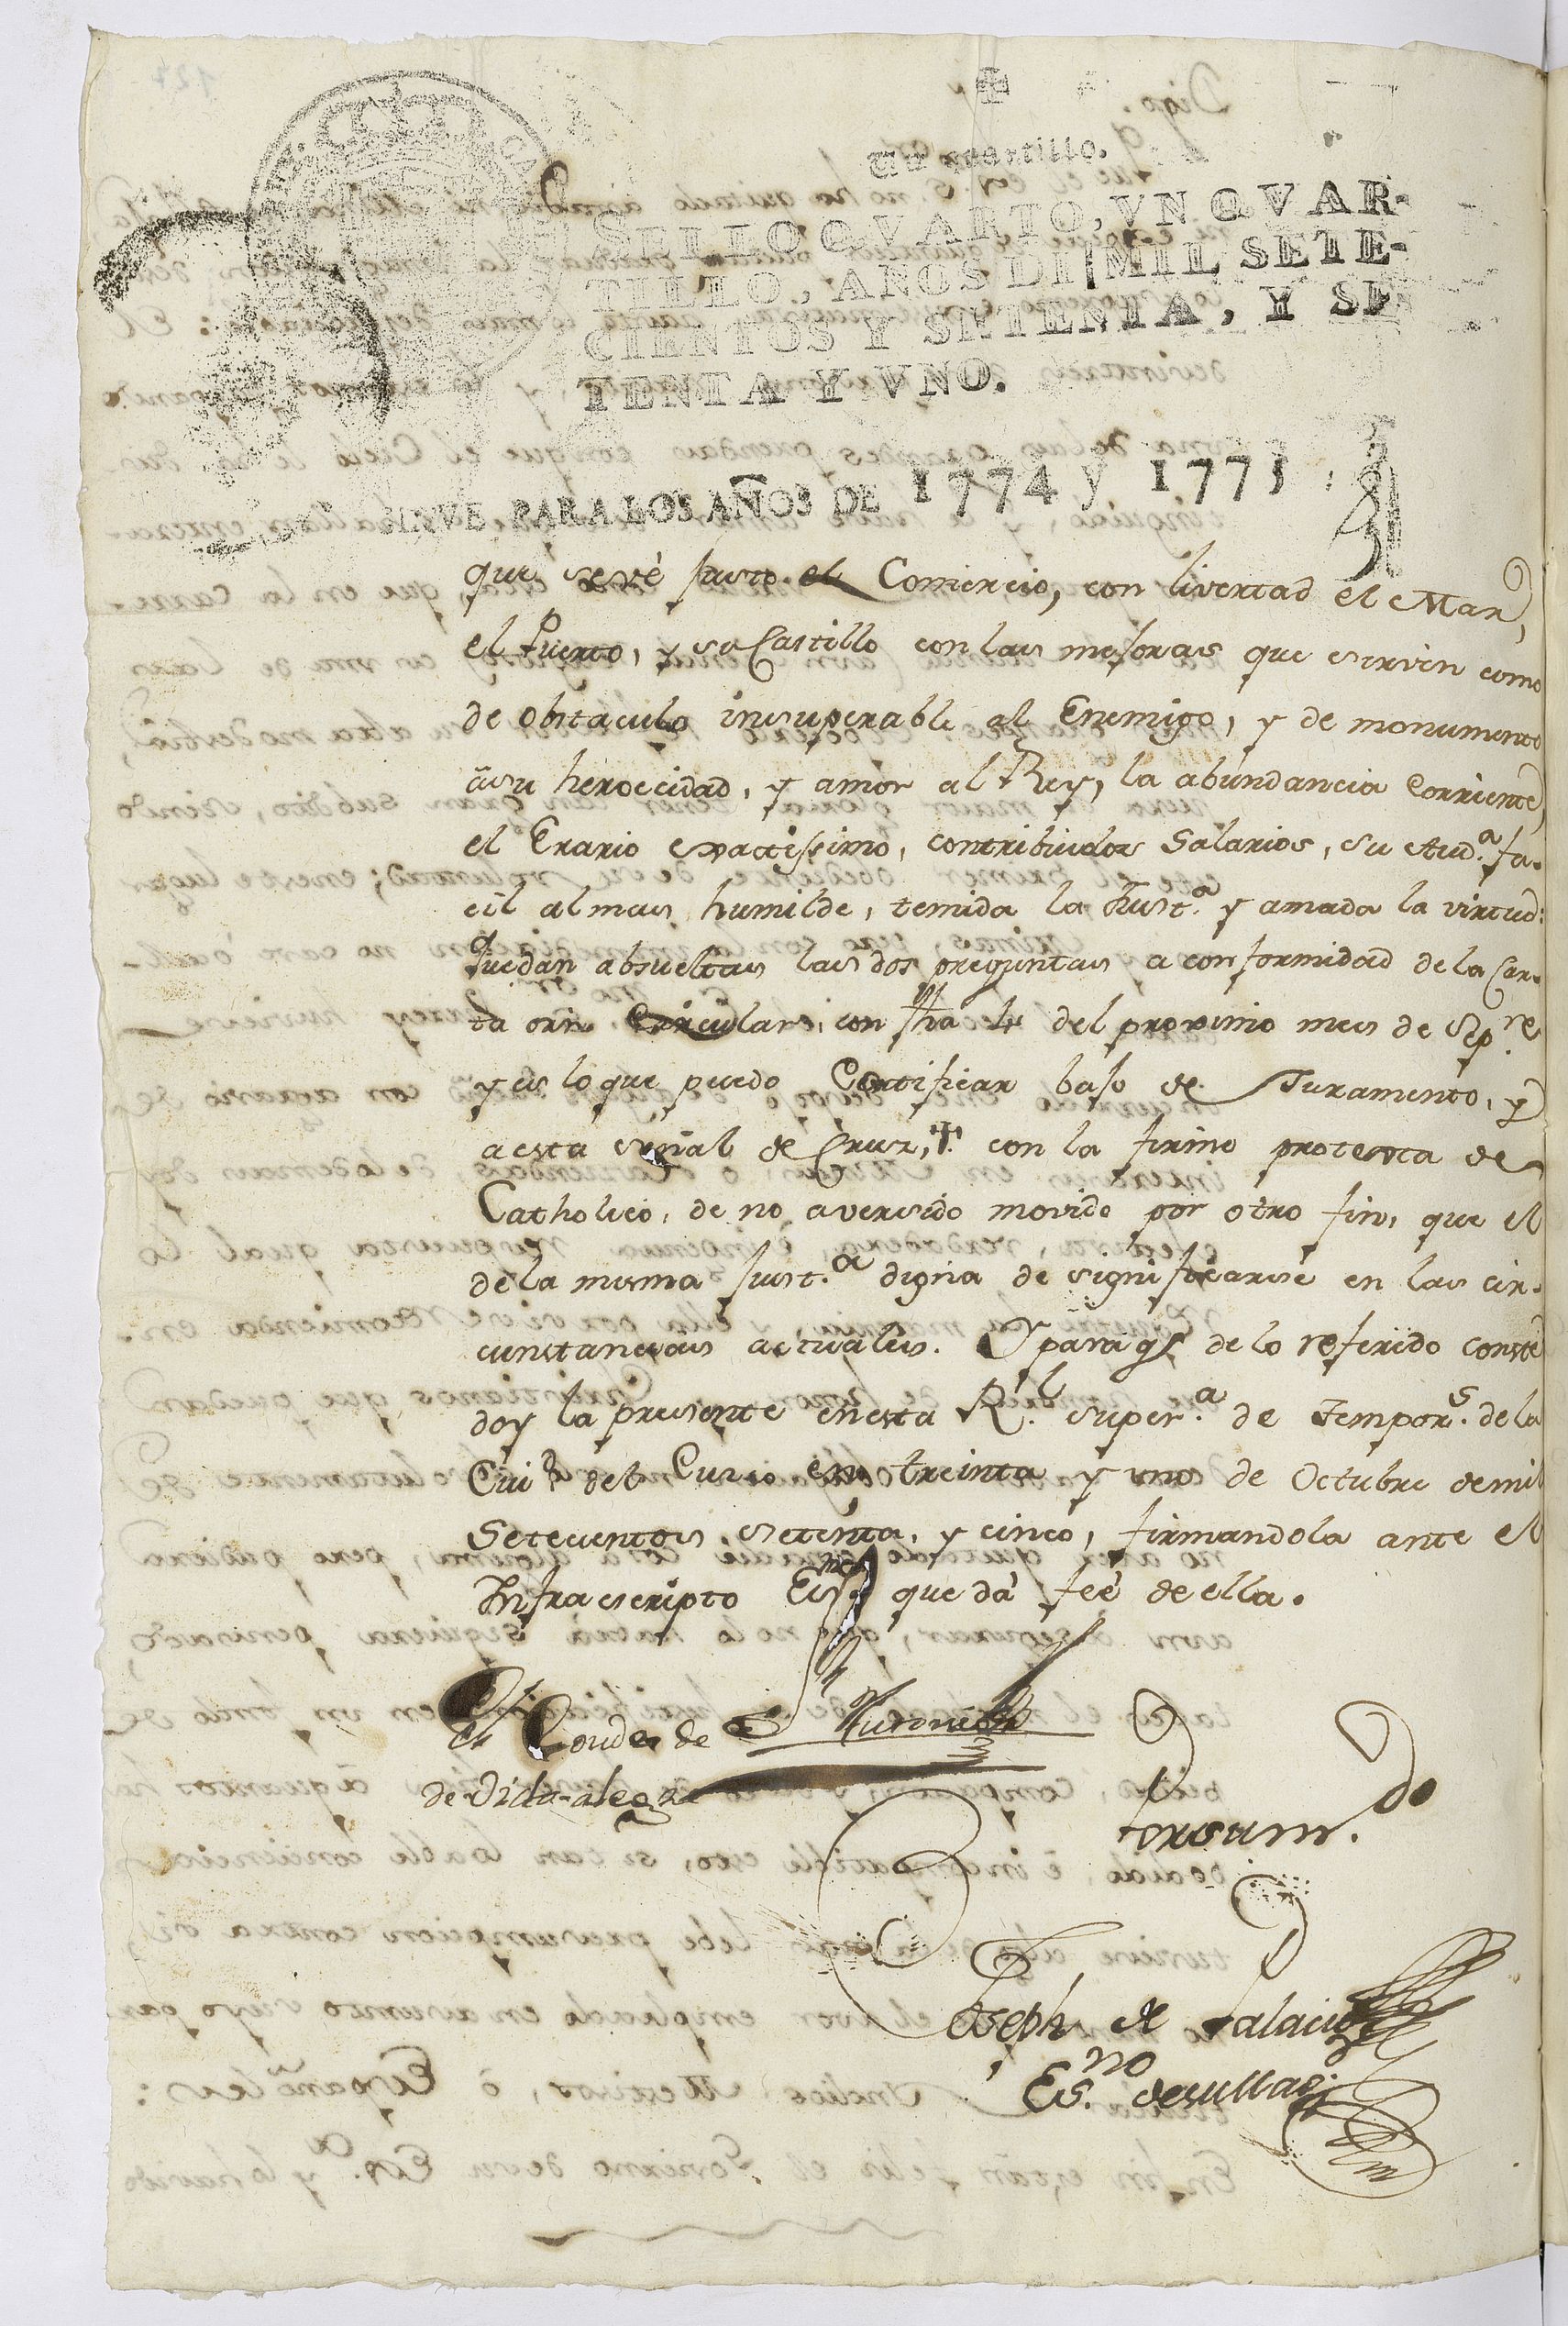 Un quartillo.
SELLO QVARTO, VN QVAR-
TILLO, AÑOS DE MIL SETE-
CIENTOS Y SETENTA, Y SE-
TENTA Y VNO.
SIRVE PARA LOS AÑOS DE 1774 y 1775
que se vé justo el Comercio, con livertad el Mar,
el Puerto, y su Castillo con las mejoras que sirven como
de obstaculo insuperable al Enemigo, y de monumento
asu heroecidad, y amor al Rey, la abundancia Corriente,
el Erario exactissimo, contribuidos Salarios, su Aud.ª fa-
cil al mas humilde, temida la Just.ª y amada la virtud:
Quedan absueltas las dos preguntas a conformidad de la Car-
ta orn Circular, con fha 4 del proximo mes de Sep.re
y es lo que puedo Certificar bajo de Juramento, y
a esta señal de Cruz, † con la firme protexta de
Catholico, de no aver sido movido por otro fin, que el
de la misma Just.ª digna de significarse en las cir-
cunstancias actuales. Y para q.e de lo referido conste
doy la presente en esta R.l super.ª de Tempor.s de la
Ciu.d del Cuzco en treinta y uno de Octubre de mil
Setecientos setenta, y cinco, firmandola ante el
Infraescripto Es.no que dá feé de ella.
El Conde de
de Vista-alegre
Joseph de Palacios
Es.no de su Mag.